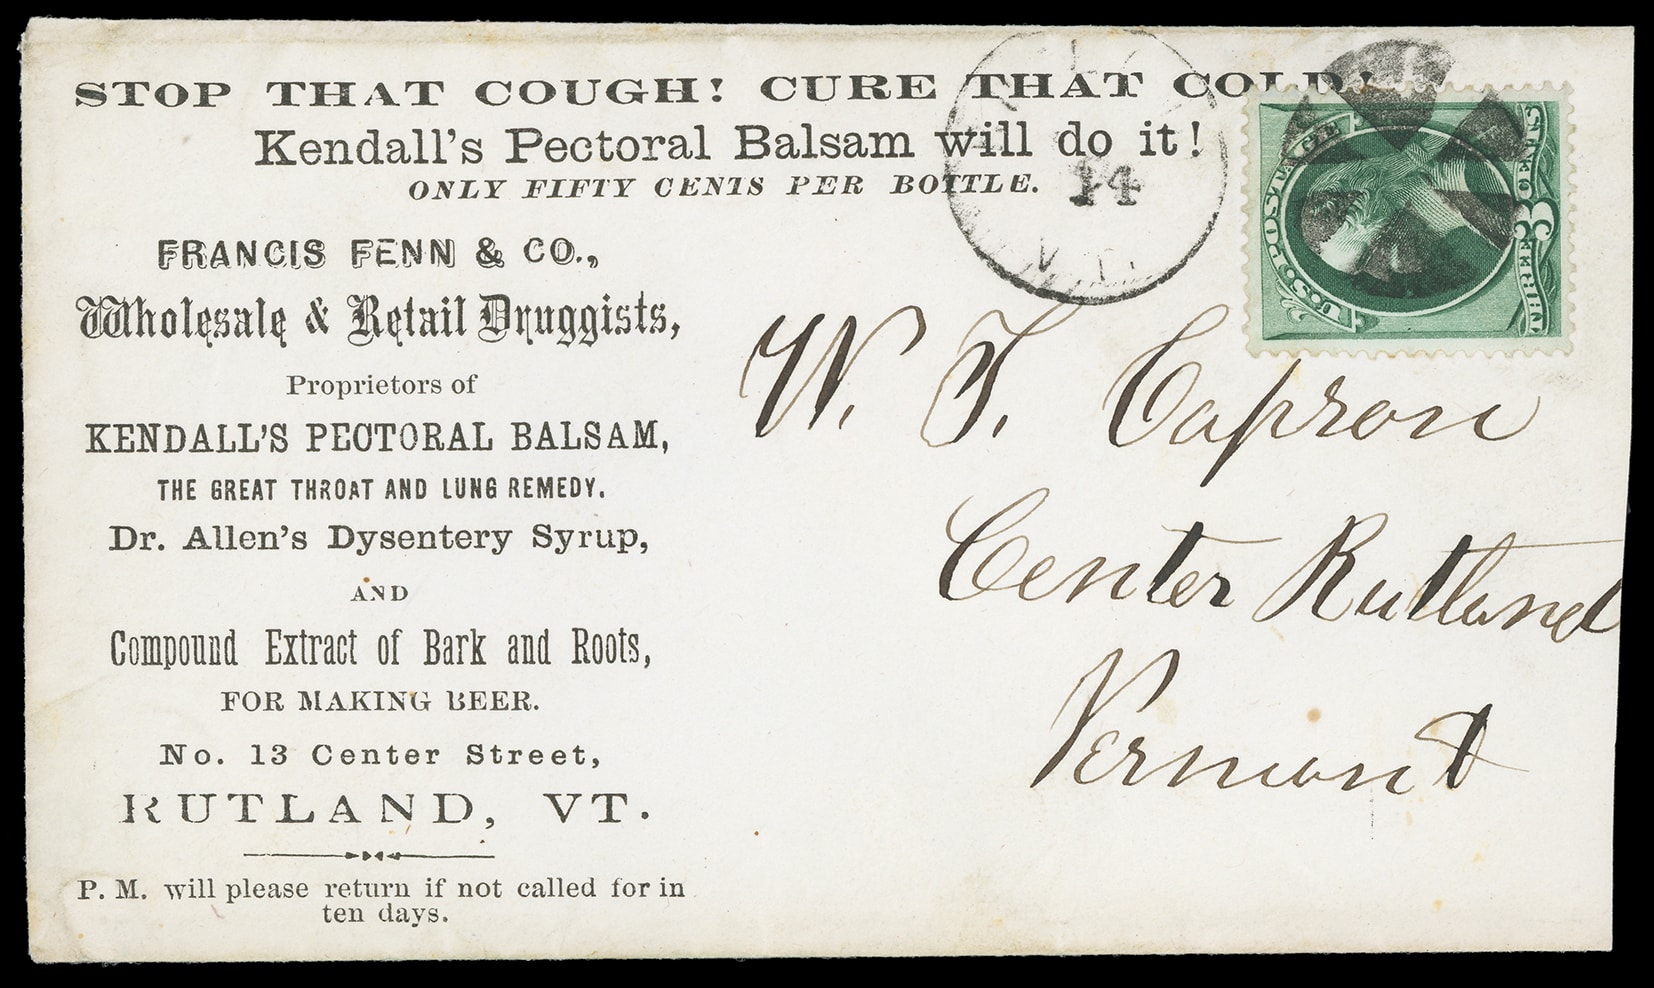 STOP THAT COUGH! CURE THAT COLD!
Kendall's Pectoral Balsam will do it!
ONLY FIFTY CENTS PER BOTTLE.
14
V T.
U.S. POSTAGE
THREE
3
CENTS
FRANCIS FENN & CO.,
Wholesale & Retail Druggists,
Proprietors of
KENDALL'S PECTORAL BALSAM,
THE GREAT THROAT AND LUNG REMEDY.
Dr. Allen's Dysentery Syrup,
AND
Compound Extract of Bark and Roots,
FOR MAKING BEER.
No. 13 Center Street,
RUTLAND, VT.
P. M. will please return if not called for in
ten days.
W. T. Capron
Center Rutland
Vermont